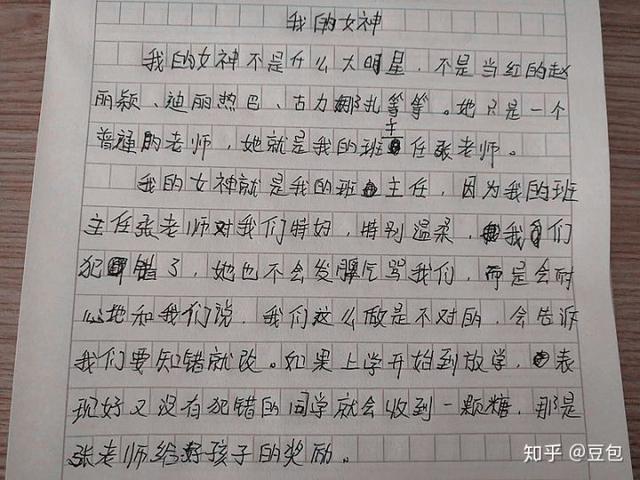 我的女神
我的女神不是什么大明星，不是当红的赵
丽颖、迪丽热巴、古力娜扎等等。她只是一个
普通的老师，她就是我的班主任张老师。
我的女神就是我的班主任，因为我的班
主任张老师对我们特好，特别温柔，我们
犯错了，她也不会发脾气骂我们，而是会耐
心地和我们说，我们这么做是不对的，会告诉
我们要知错就改。如果上学开始到放学，表
现好又没有犯错的同学就会收到一颗糖，那是
张老师给好孩子的奖励。
知乎 @豆包